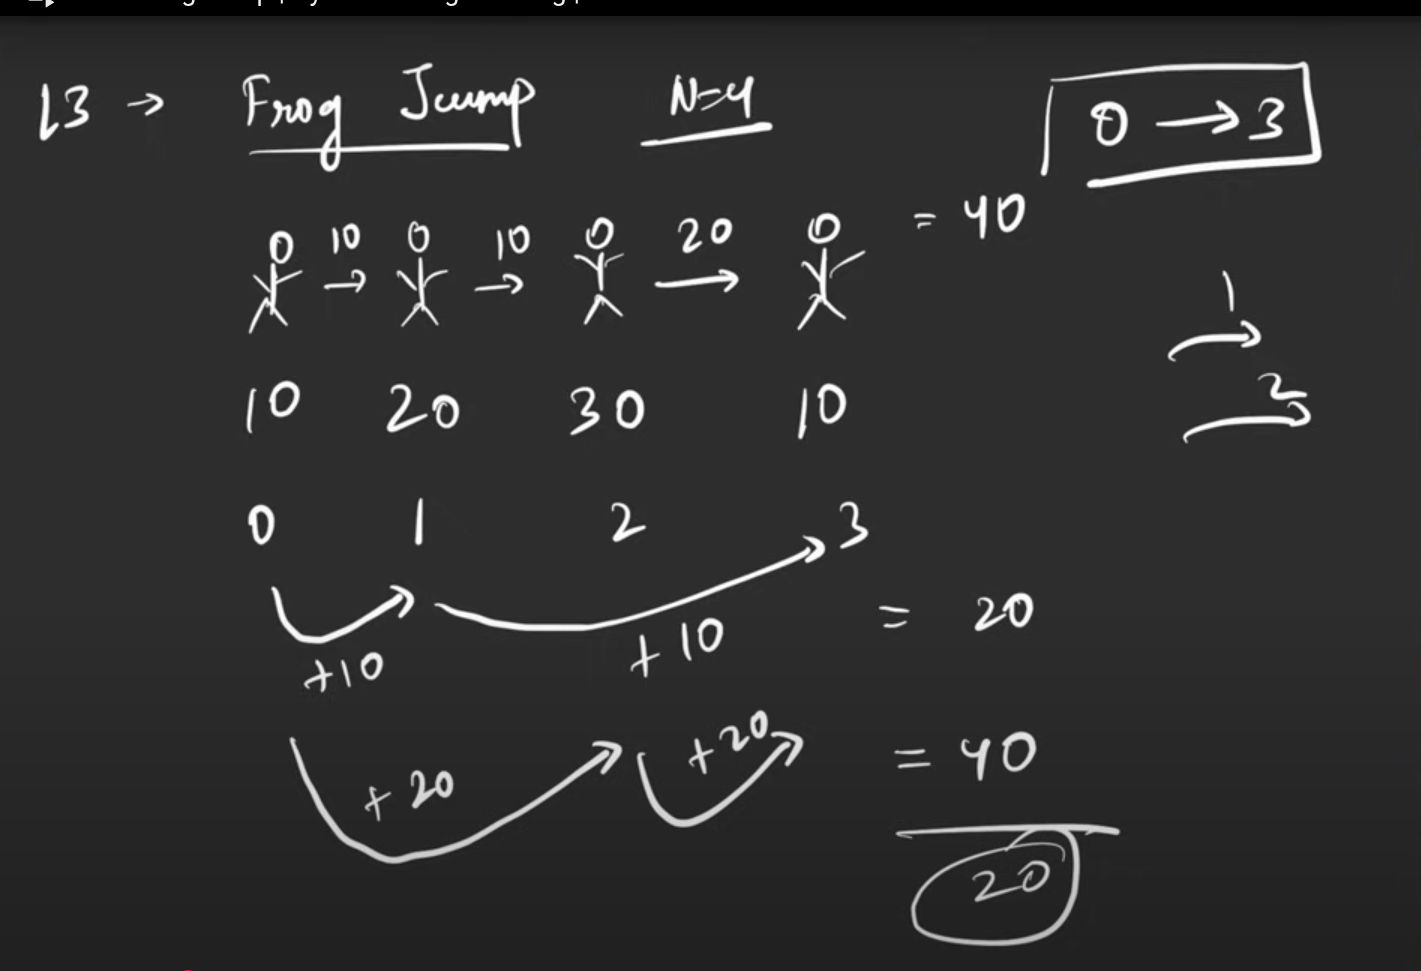 L3 → Frog Jump N=4 0 → 3
10 10 20 = 40
1
2
10 20 30 10
0 1 2 3
+10 +10 = 20
+20 +20 = 40
20